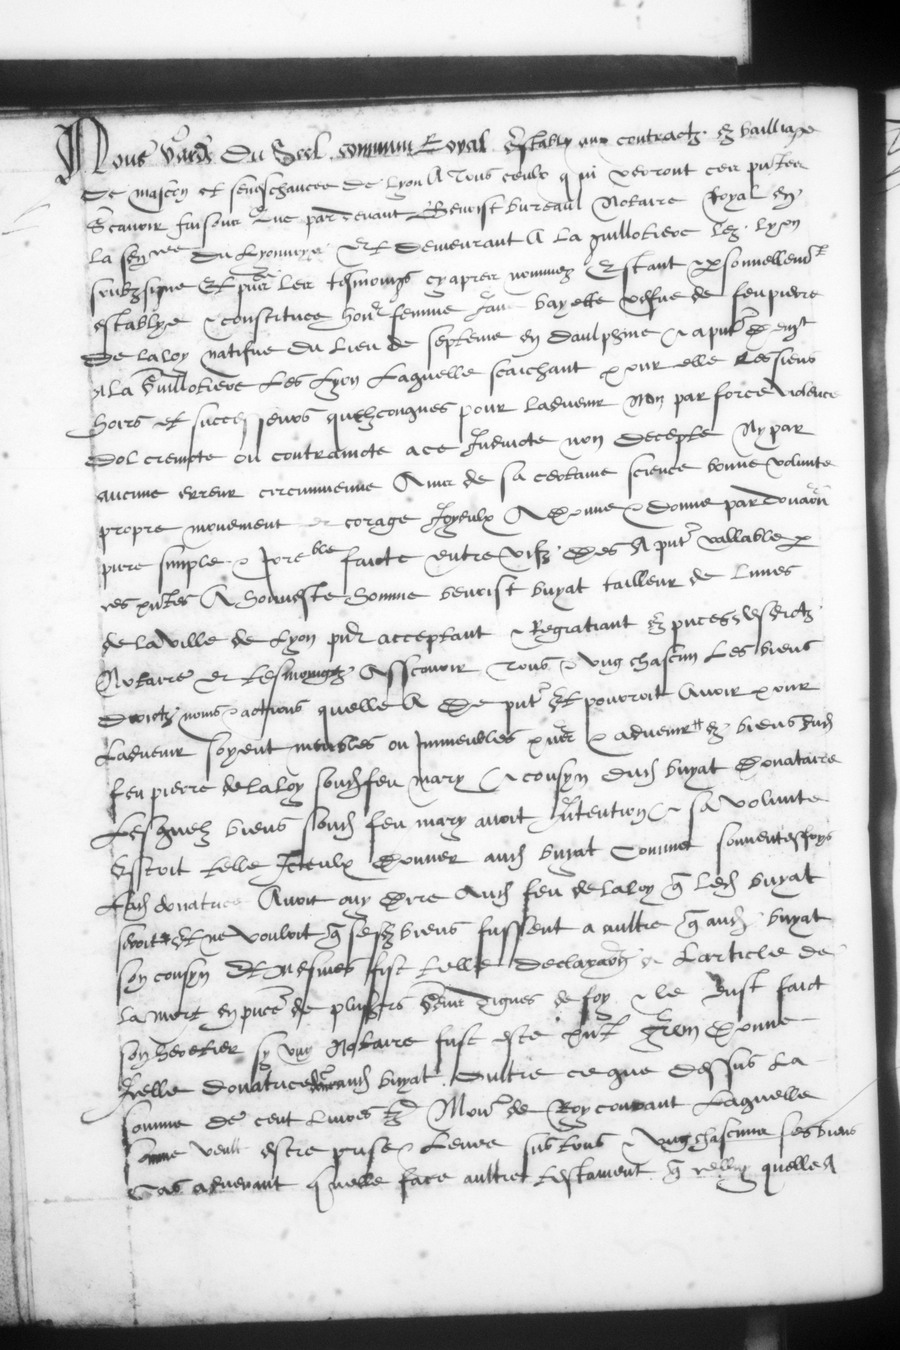 Nous garde du Seel commun Royal establly aux contractz es bailliage
De mascon et seneschaucee de lyon A Tous ceulx qui verront ces pntes
Scavoir faisons Que par devant Benoist bureau Notaire Royal en
la sennee du lyonnoys Et demeurant A la guillotiere lez lyon
soubzsigne Et pns les tesmoings cy apres nommez Estant personnellemt
establye & constituee honr femme bayette vefve de feu pierre
De laloy natifve du lieu de septeme en daulphine & a pnt
A La Guillotiere Les Lyon Laquelle scaichant pour elle Les siens
hoirs et successeurs quelzconques pour ladvenir Non par force violence
Dol craincte ou contraincte a ce Induicte non deceple Ny par
aucune erreur circumvenue Ains de sa certaine science bonne volunte
propre mouvement et corage Joyeulx A donne & donne par donaon
pure simple & Irreble faicte entre vifz Des A pnt vallable p
ces pntes A honneste homme benoist buyat tailleur de Limes
de la ville de Lyon pnt acceptant & Regratiant es pnces desdictz
Notaire et tesmoingz Asscavoir Tous & ung chascun Les biens
droictz noms & actions quelle A De pnt Et pouvroit Avoir pour
Ladvenir soyent meubles ou Immeubles pns & advenir Et es biens dud
feu pierre de laloy sond feu mary & cousyn dud buyat Donataire
Lesquelz biens sond feu mary avoit Intention & sa volunte
Estoit telle Iceulx Donner aud buyat Comme souventesfoys
Lad donatrice Avoit ouy Dire Aud feu de laloy q Led buyat
seroit Et ne vouloit q sesd biens fussent a aultre q aud buyat
son cousyn Et Mesmes fist telle declaraon a Larticle de
la mort en pnce de plusrs gens dignes de foy & le Eust faict
son heretier sy ung Notaire fust este pnt Item Donne
Icelle donatrice aud buyat oultre ce que dessus La
somme de cent Livres tz Monoe de Roy courant Laquelle
somme veult estre prise & Levee sus tous & ung chascuns ses biens
Cas advenant quelle face aultre testament q celluy quelle A